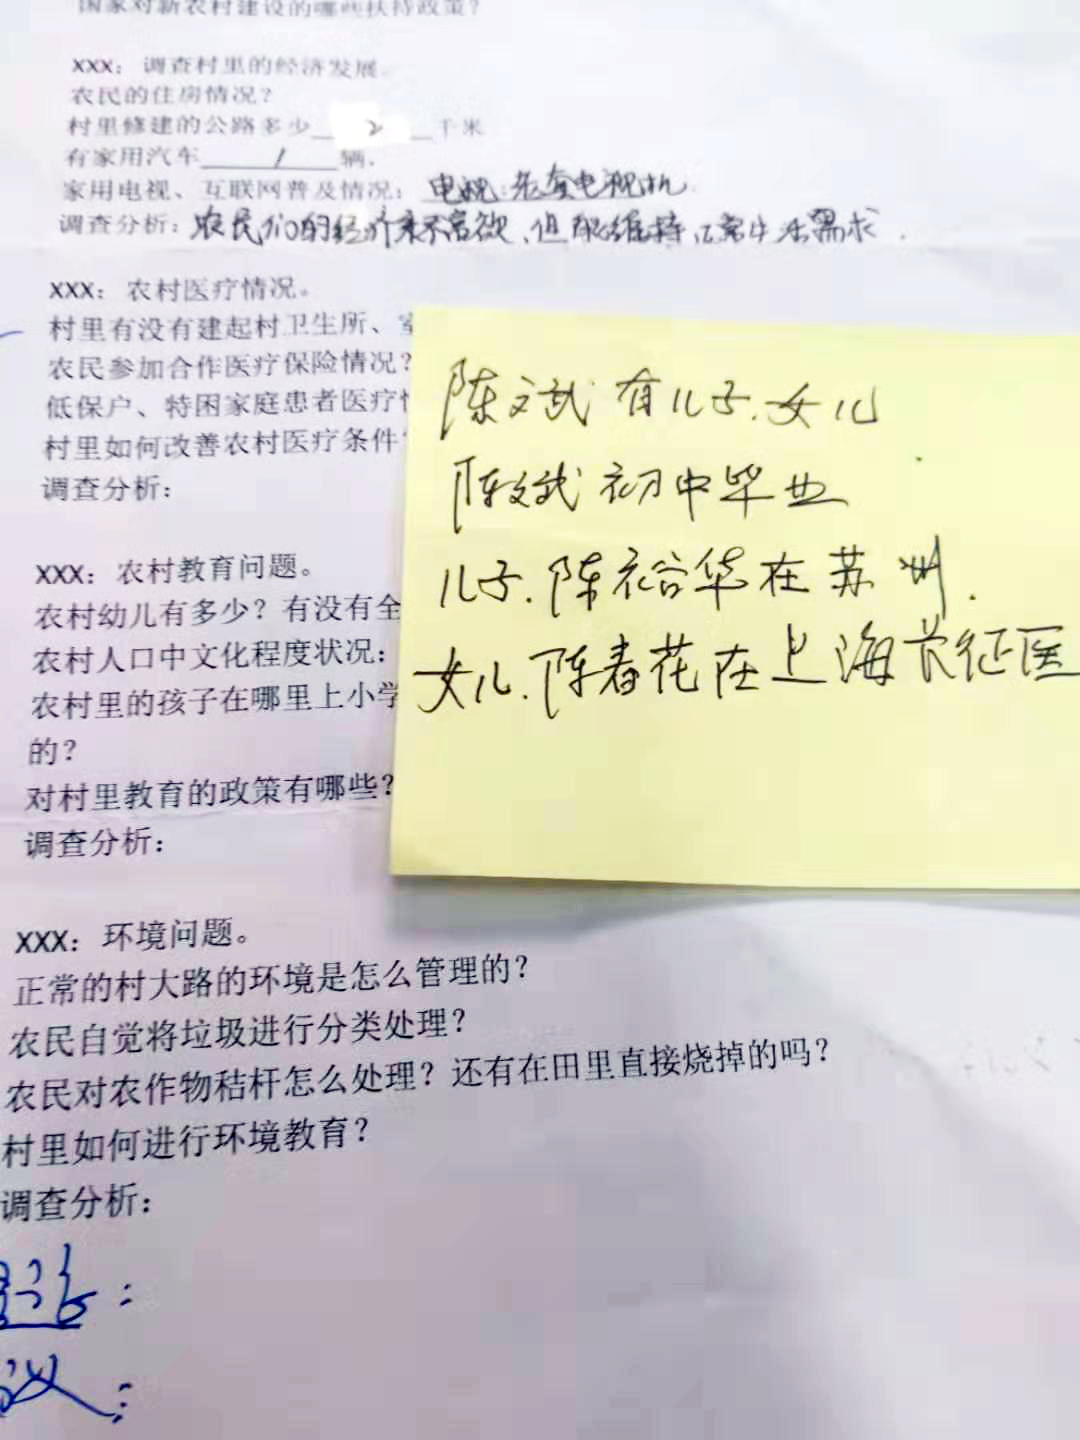 国家对新农村建设的哪些扶持政策？
XXX：调查村里的经济发展。
农民的住房情况？
村里修建的公路多少 2 千米
有家用汽车 1 辆．
家用电视、互联网普及情况：电视：老套电视机
调查分析：农民们的经济来不富欲，但能维持正常生活需求．
XXX：农村医疗情况。
村里有没有建起村卫生所、
农民参加合作医疗保险情况？
低保户、特困家庭患者医疗
村里如何改善农村医疗条件
调查分析：
XXX：农村教育问题。
农村幼儿有多少？有没有全
农村人口中文化程度状况：
农村里的孩子在哪里上小学
的？
对村里教育的政策有哪些？
调查分析：
陈文武 有儿子．女儿
陈文武 初中毕业
儿子．陈裕华在苏州．
女儿．陈春花在上海长征医
XXX：环境问题。
正常的村大路的环境是怎么管理的？
农民自觉将垃圾进行分类处理？
农民对农作物秸秆怎么处理？还有在田里直接烧掉的吗？
村里如何进行环境教育？
调查分析：